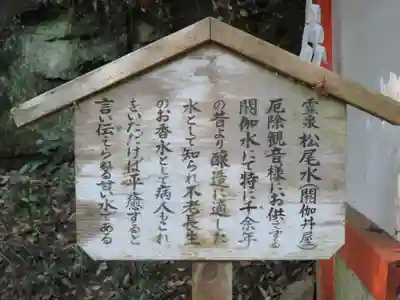 霊泉 松尾水(閼伽井屋)
厄除観音様にお供えする
閼伽水にて特に千余年
の昔より醸造に適した
水として知られ不老長生
のお香水として病人もこれ
をいただけば平癒すると
言い伝てられる甘い水である